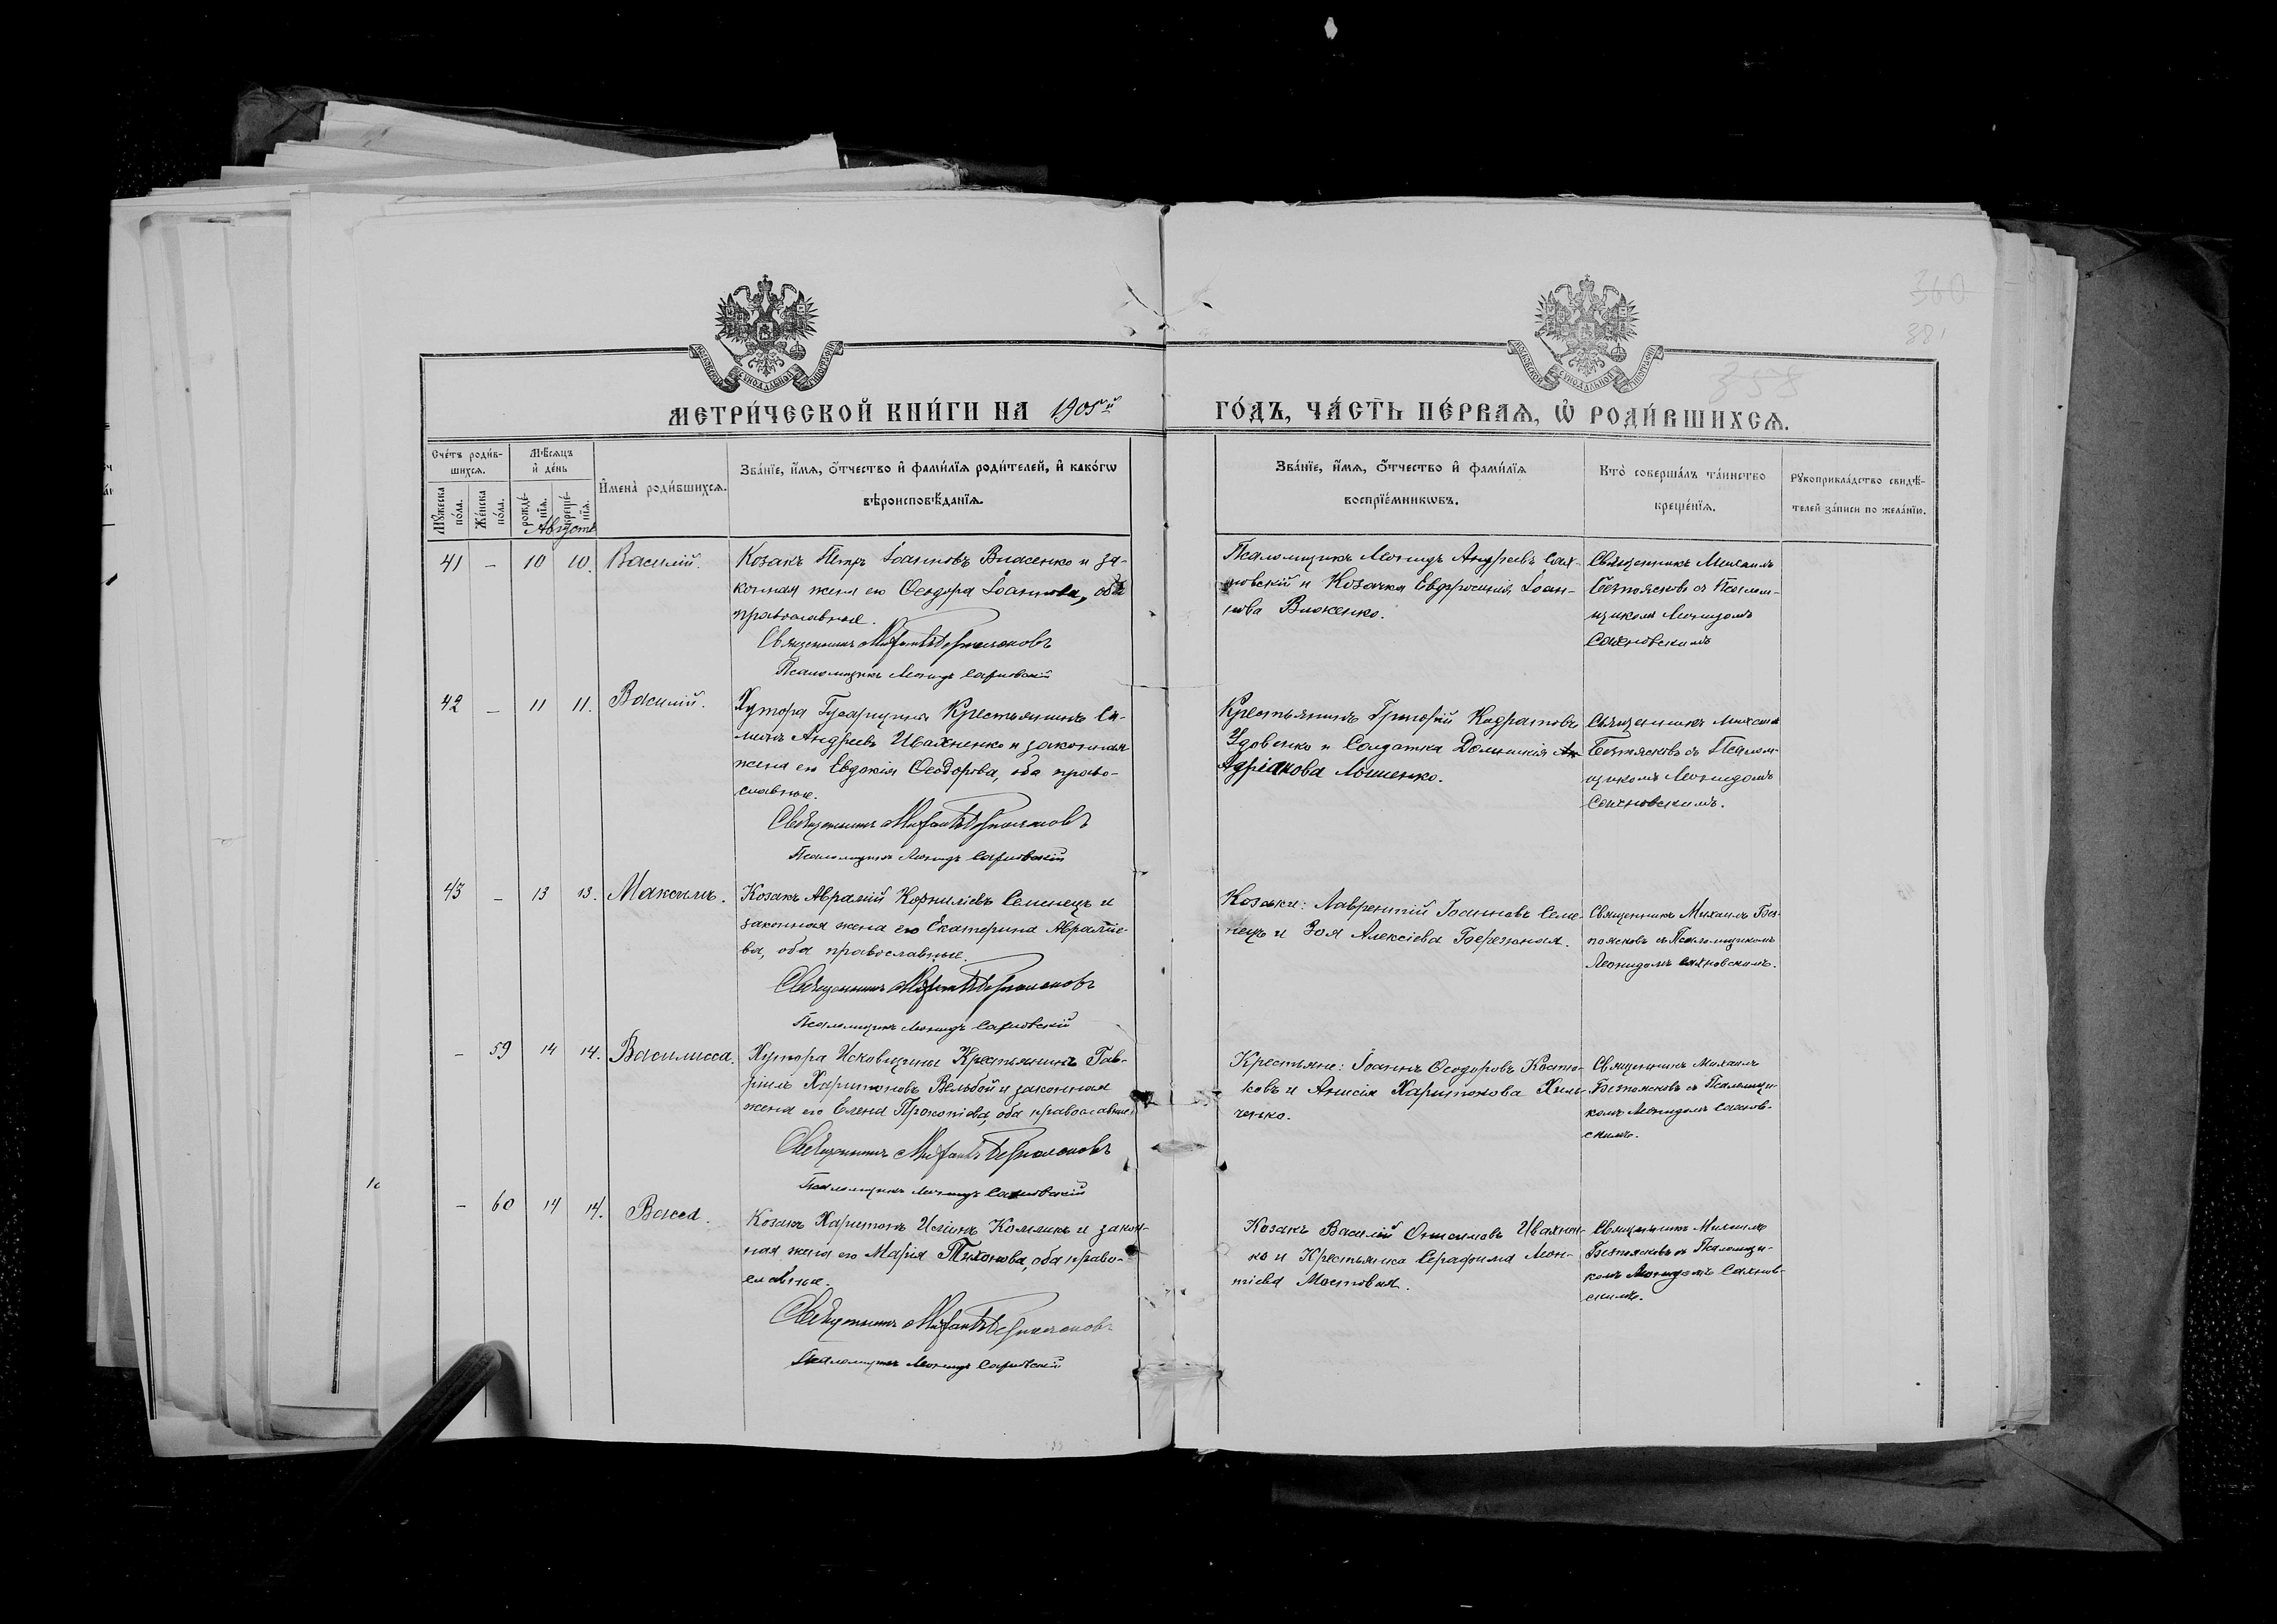 360
381
358
МОСКОВСКОЙ СѴНОДАЛЬНОЙ ТИПОГРАФІИ
МОСКОВСКОЙ СѴНОДАЛЬНОЙ ТИПОГРАФІИ
МЕТРИ́ЧЕСКОЙ КНИ́ГИ НА 1905й ГО́ДЪ, ЧА́СТЬ ПЕ́РВАѦ, Ѡ҆ РОДИ́ВШИХСѦ.
Сче́тъ роди́в-
шихся.
Мꙋ́жеска по́ла.
Же́нска по́ла.
Мѣ́сяцъ
и҆ де́нь
рожде́-
нїя.
креще́-
нїя.
Августъ
И҆мена̀ роди́вшихся.
Зва́нїе, и҆́мя, ѻ҆́тчество и҆ фами́лїя роди́телей, и҆ како́гѡ
вѣроисповѣ́данїя.
Зва́нїе, и҆́мя, ѻ҆́тчество и҆ фами́лїя
воспрїе́мникѡвъ.
Кто̀ соверша́лъ та́инство
креще́нїя.
Рꙋкоприкла́дство свидѣ́-
телей за́писи по жела́нїю.
41 – 10 10. Василій.
Козакъ Петръ Іоанновъ Власенко и за-
конная жена его Ѳеодора Іоаннова, оба
православные.
Священникъ Михаилъ Безпоясковъ
Псаломщикъ Леонидъ Сахновскій
Псаломщикъ Леонидъ Андреевъ Сах-
новскій и Козачка Евфросинія Іоан-
нова Власенко.
Священникъ Михаилъ
Безпоясковъ съ Псалом-
щикомъ Леонидомъ
Сахновскимъ
42 – 11 11. Василій.
Хутора Гусарщина Крестьянинъ Си-
меонъ Андреевъ Ивахненко и законная
жена его Евдокія Ѳеодорова, оба право-
славные.
Священникъ Михаилъ Безпоясковъ
Псаломщикъ Леонидъ Сахновскій
Крестьянинъ Григорій Кодратовъ
Удовенко и Солдатка Домникія Ан
Адріанова
Священникъ Михаилъ
Безпоясковъ съ Псалом-
щикомъ Леонидомъ
Сахновскимъ.
43 – 13 13. Максимъ.
Козакъ Аврамій Корниліевъ Семенецъ и
законная жена его Екатерина Авраміе-
ва, оба православные.
Священникъ Михаилъ Безпоясковъ
Псаломщикъ Леонидъ Сахновскій
Козаки: Лаврентій Іоанновъ Семе-
нецъ и Зоя Алексіева Бережная.
Священникъ Михаилъ Без-
поясковъ съ Псаломщикомъ
Леонидомъ Сахновскимъ.
– 59 14 14. Василисса.
Хутора Исковщины Крестьянинъ Гав-
ріилъ Харитоновъ Вельбой и законная
жена его Елена Прокопіева, оба православные
Священникъ Михаилъ Безпоясковъ
Псаломщикъ Леонидъ Сахновскій
Крестьяне: Іоаннъ Ѳеодоровъ Костю-
ковъ и Анисія Харитонова Хиль-
ченко.
Священникъ Михаилъ
Безпоясковъ съ Псаломщи-
комъ Леонидомъ Сахнов-
скимъ.
– 60 14 14. Васса.
Козакъ Харитонъ Исаіинъ Комликъ и закон-
ная жена его Марія Тихонова, оба право-
славные.
Священникъ Михаилъ Безпоясковъ
Псаломщикъ Леонидъ Сахновскій
Козакъ Василій Онисимовъ Ивахнен-
ко и Крестьянка Серафима Леон-
тіева Мостовая.
Священникъ Михаилъ
Безпоясковъ съ Псаломщи-
комъ Леонидомъ Сахнов-
скимъ.